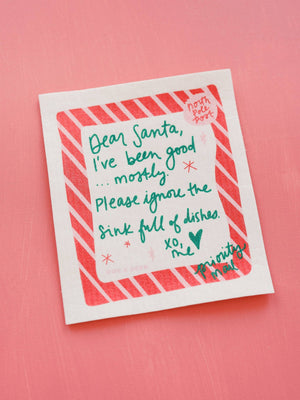 north
pole
post
Dear Santa,
I've been good
...mostly.
Please ignore the
sink full of dishes.
xo,
me
priority
mail